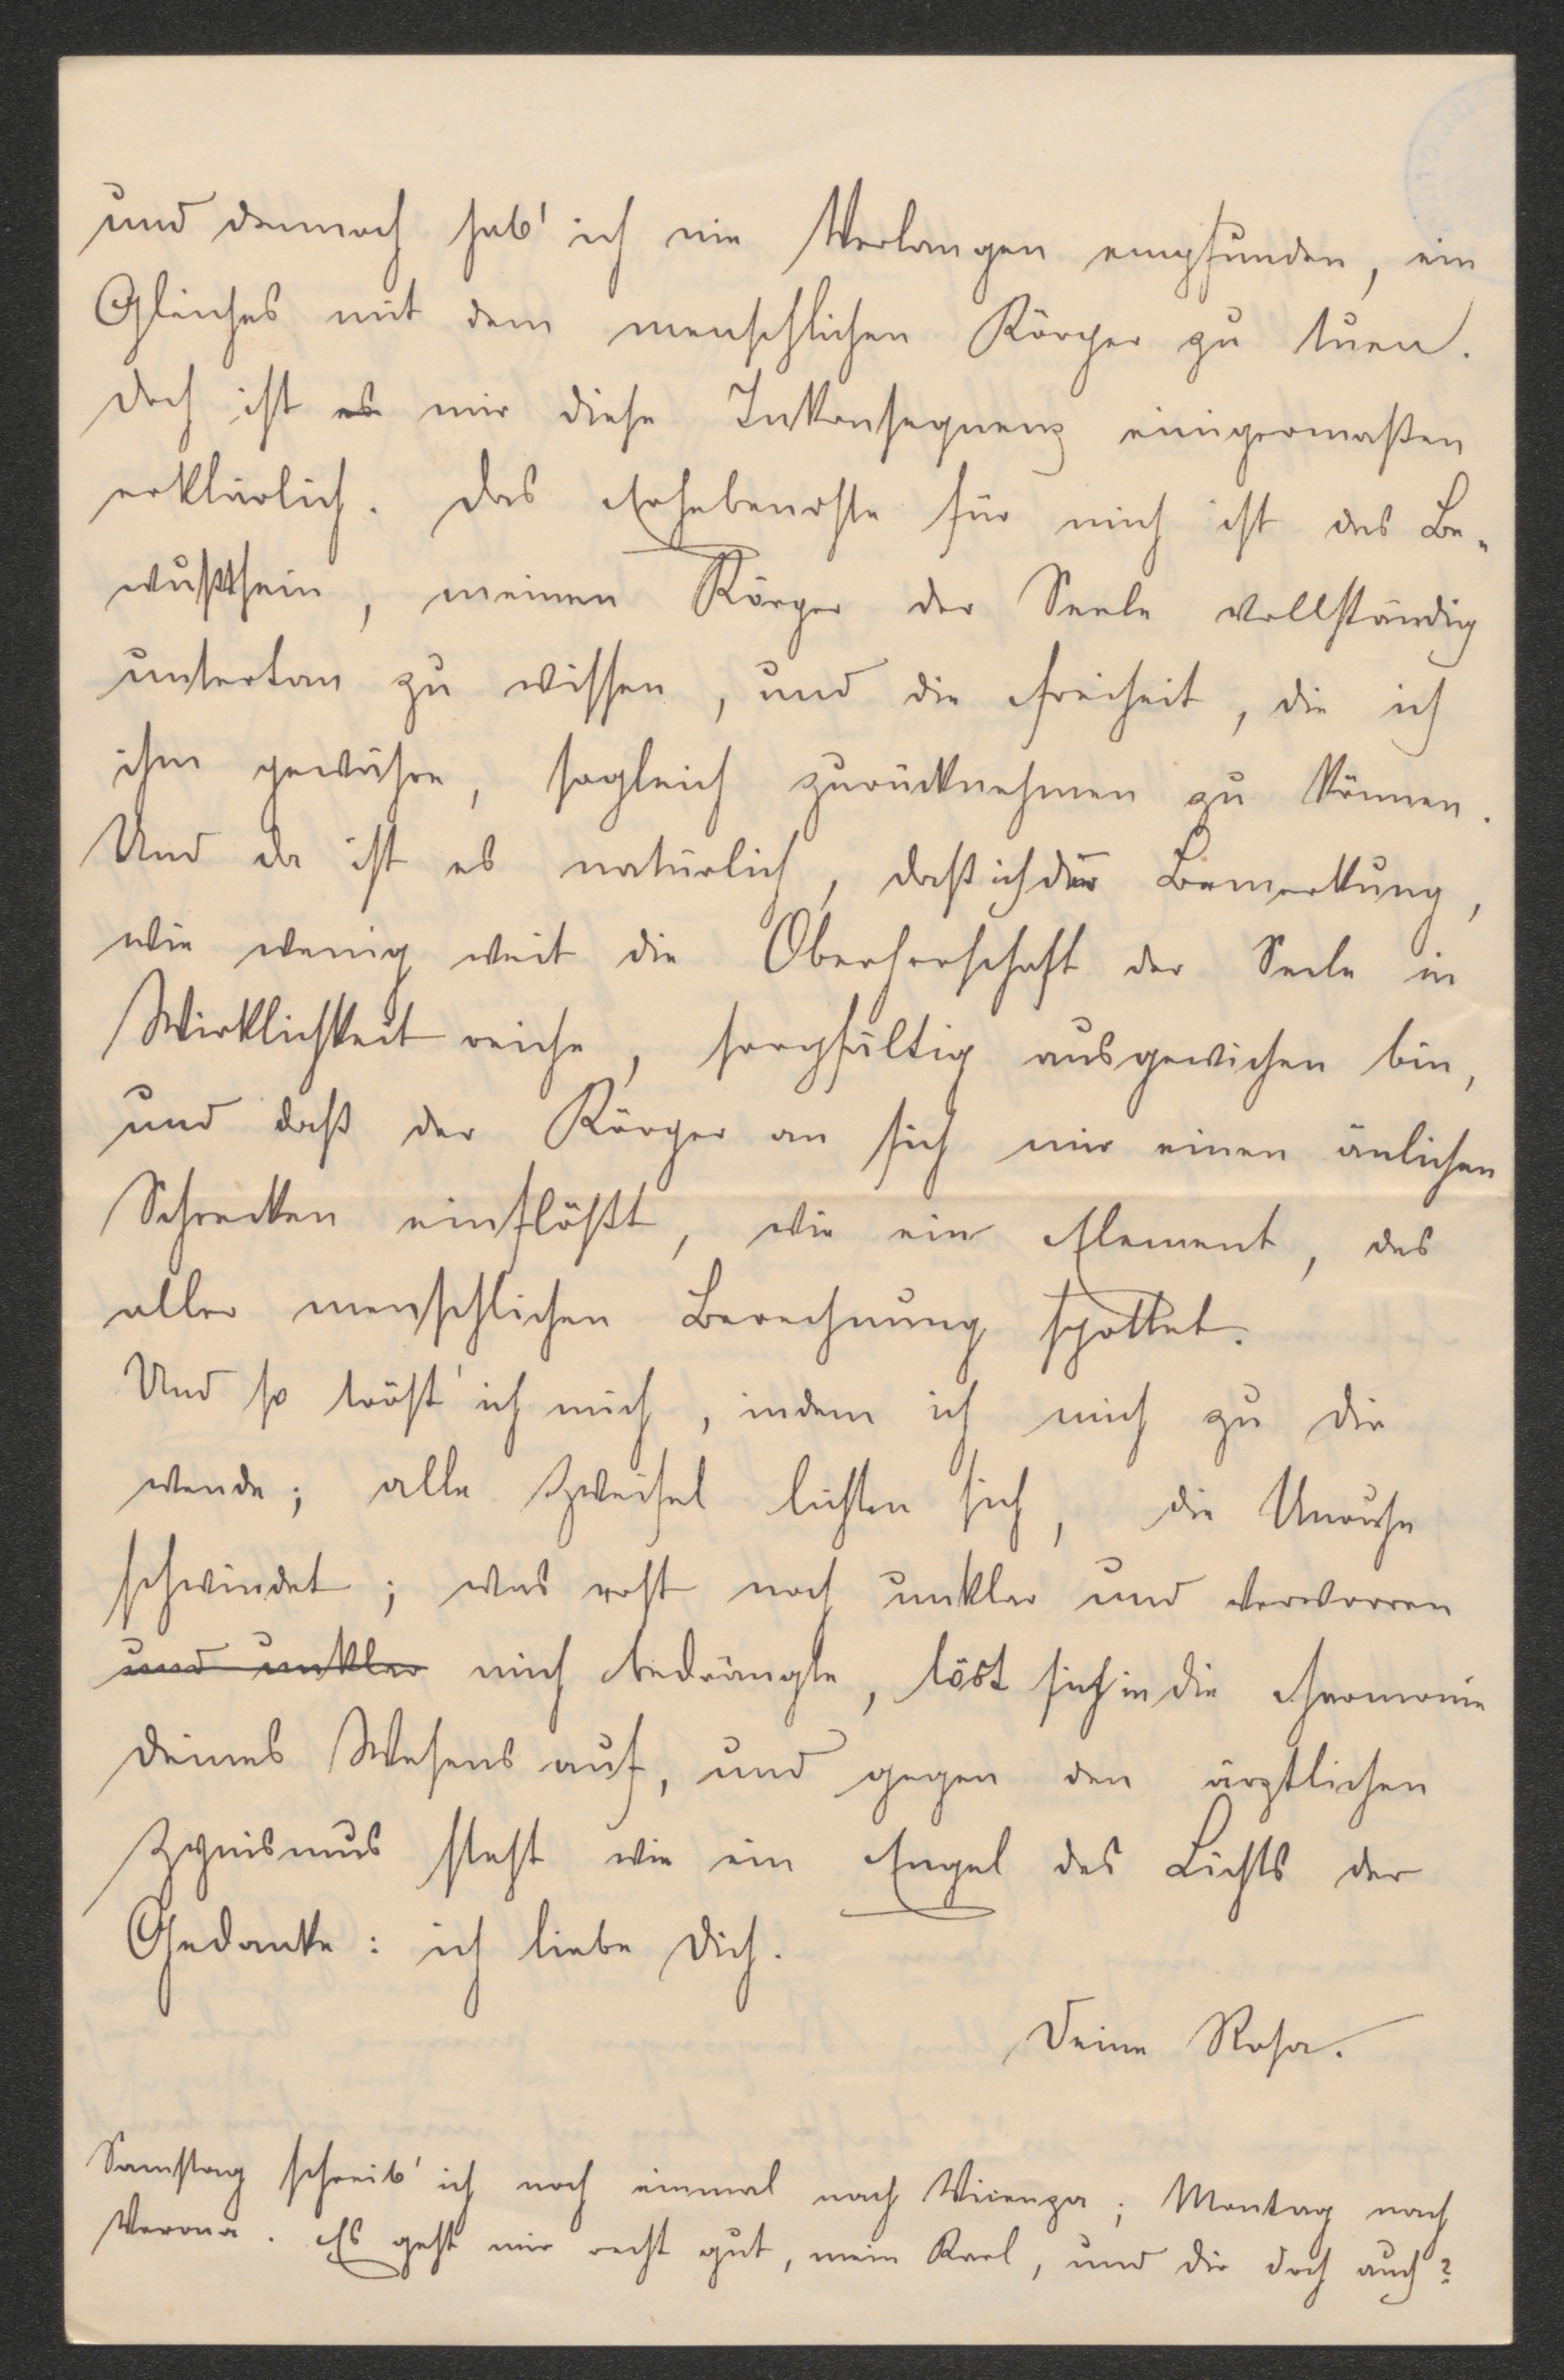 und dennoch hab' ich nie Verlangen empfunden, ein
Gleiches mit dem menschlichen Körper zu tuen.
Doch ist es mir diese Inkonsequenz einigermaßen
erklärlich. Das Erhebendste für mich ist das Be-
wußtsein, meinen Körper der Seele vollständig
untertan zu wissen, und die Freiheit, die ich
ihm gewähre, sogleich zurücknehmen zu können.
Und da ist es natürlich, daß ich der Bemerkung,
wie wenig weit die Oberherrschaft der Seele in
Wirklichkeit reiche, sorgfältig ausgewichen bin,
und daß der Körper an sich mir einen änlichen
Schrecken einflößt, wie ein Element, das
aller menschlichen Berechnung spottet.
Und so tröst' ich mich, indem ich mich zu Dir
wende; alle Zweifel lichten sich, die Unruhe
schwindet; was erst noch unklar und verworren
und unklar mich bedrängte, löst sich in die Harmonie
Deines Wesens auf, und gegen den ärztlichen
Zynismus steht wie ein Engel des Lichts der
Gedanke: ich liebe Dich.
Deine Rosa.
Samstag schreib' ich noch einmal nach Vicenza; Montag nach
Verona. Es geht mir recht gut, mein Karl, und Dir doch auch?